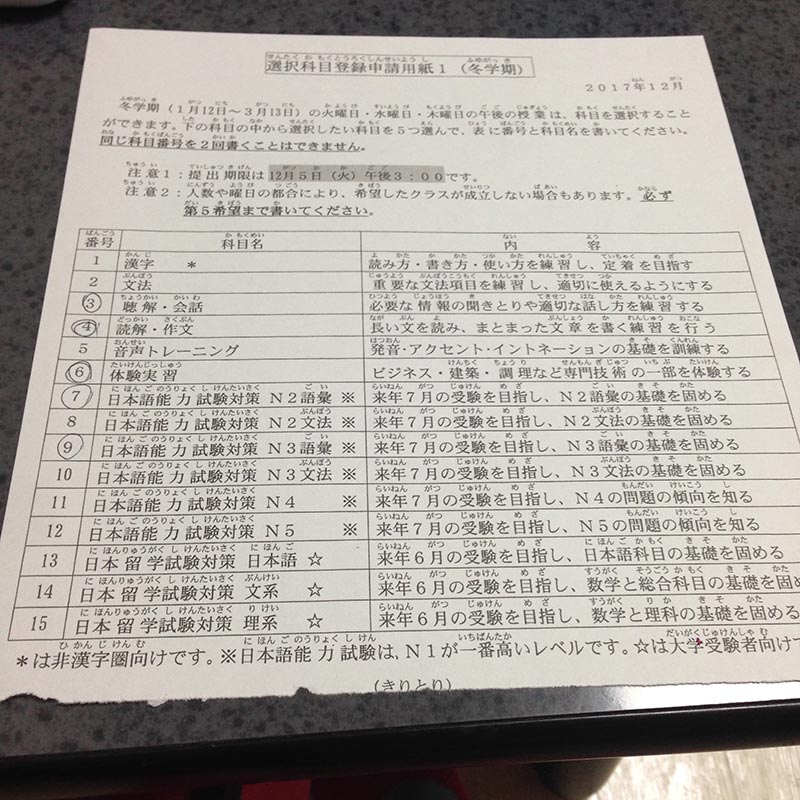 選択科目登録申請用紙1（冬学期）
2017年12月
冬学期（1月12日～3月13日）の火曜日・水曜日・木曜日の午後の授業は、科目を選択すること
ができます。下の科目の中から選択したい科目を5つ選んで、表に番号と科目名を書いてください。
同じ科目番号を2回書くことはできません。
注意1：提出期限は12月5日（火）午後3：00です。
注意2：人数や曜日の都合により、希望したクラスが成立しない場合もあります。必ず
第5希望まで書いてください。
番号 科目名 内容
1 漢字 * 読み方・書き方・使い方を練習し、定着を目指す
2 文法 重要な文法項目を練習し、適切に使えるようにする
3 聴解・会話 必要な情報の聞きとりや適切な話し方を練習する
4 読解・作文 長い文を読み、まとまった文章を書く練習を行う
5 音声トレーニング 発音・アクセント・イントネーションの基礎を訓練する
6 体験実習 ビジネス・建築・調理など専門技術の一部を体験する
7 日本語能力試験対策 N2語彙 ※ 来年7月の受験を目指し、N2語彙の基礎を固める
8 日本語能力試験対策 N2文法 ※ 来年7月の受験を目指し、N2文法の基礎を固める
9 日本語能力試験対策 N3語彙 ※ 来年7月の受験を目指し、N3語彙の基礎を固める
10 日本語能力試験対策 N3文法 ※ 来年7月の受験を目指し、N3文法の基礎を固める
11 日本語能力試験対策 N4 ※ 来年7月の受験を目指し、N4の問題の傾向を知る
12 日本語能力試験対策 N5 ※ 来年7月の受験を目指し、N5の問題の傾向を知る
13 日本留学試験対策 日本語 ☆ 来年6月の受験を目指し、日本語科目の基礎を固める
14 日本留学試験対策 文系 ☆ 来年6月の受験を目指し、数学と総合科目の基礎を固め
15 日本留学試験対策 理系 ☆ 来年6月の受験を目指し、数学と理科の基礎を固める
*は非漢字圏向けです。※日本語能力試験は、N1が一番高いレベルです。☆は大学受験者向け
（きりとり）